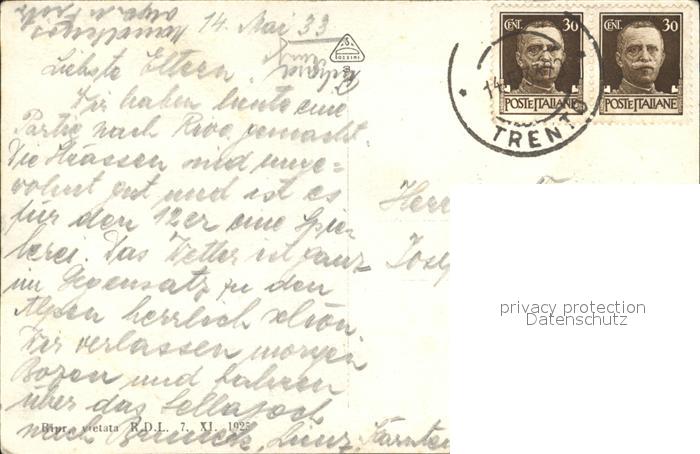 14. Mai 33
Liebste Eltern
Wir haben heute eine
Partie nach Riva gemacht
Die Strassen sind unge=
wohnt gut und ist es
für den 12er eine Spie
lerei. Das Wetter ist ganz
im Gegensatz zu den
Alpen herrlich schön
Wir verlassen morgen
Bozen und fahren
über das Sellajoch
nach Bruneck, Lienz, Kärnten
Ripr. vietata R.D.L. 7. XI. 1925
CENT. 30
POSTE ITALIANE
CENT. 30
POSTE ITALIANE
TRENTO
Herr
Josef
privacy protection
Datenschutz